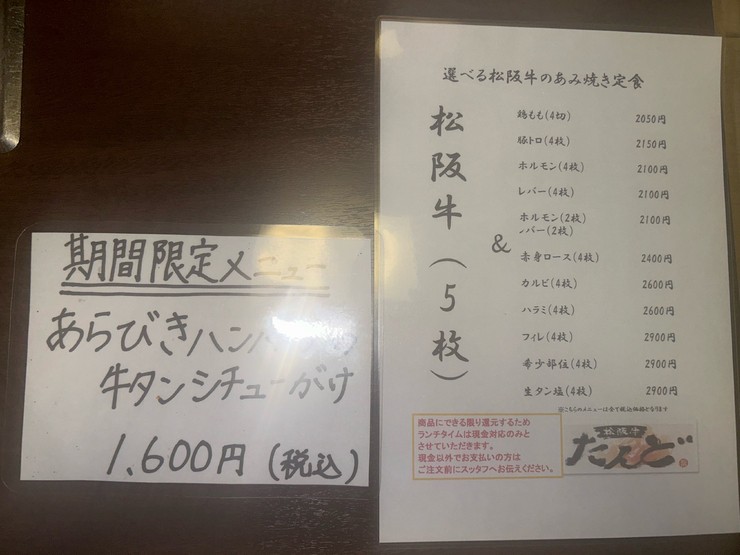 期間限定メニュー
あらびきハンバーグの
牛タンシチューがけ
1,600円(税込)
選べる松阪牛のあみ焼き定食
松阪牛(5枚)
&
鶏もも(4切) 2050円
豚トロ(4枚) 2150円
ホルモン(4枚) 2100円
レバー(4枚) 2100円
ホルモン(2枚) 2100円
レバー(2枚)
赤身ロース(4枚) 2400円
カルビ(4枚) 2600円
ハラミ(4枚) 2600円
フィレ(4枚) 2900円
希少部位(4枚) 2900円
生タン塩(4枚) 2900円
※こちらのメニューは全て税込価格となります
商品にできる限り還元するため
ランチタイムは現金対応のみと
させていただきます。
現金以外でお支払いの方は
ご注文前にスッタフへお伝えください。
松阪牛
たんど